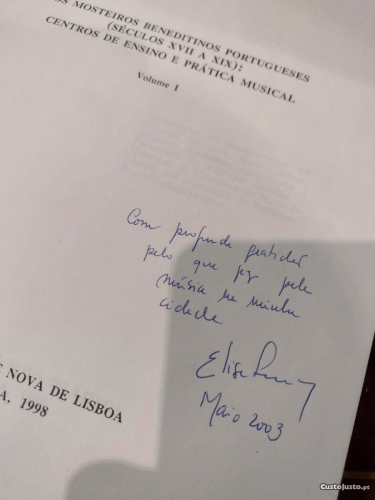 OS MOSTEIROS BENEDITINOS PORTUGUESES
(SÉCULOS XVII A XIX):
CENTROS DE ENSINO E PRÁTICA MUSICAL
Volume I
Com profunda gratidão
pelo que fez pela
música na minha
cidade
Elisa
Maio 2003
NOVA DE LISBOA
1998
CustoJusto.pt